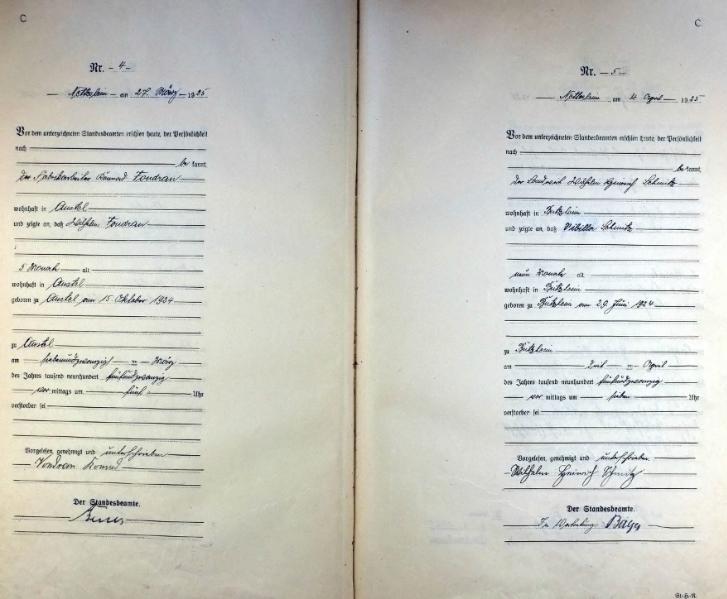 C.
Nr. - 4 -
am 27. März 1925
Vor dem unterzeichneten Standesbeamten erschien heute, der Persönlichkeit
nach
be kannt,
der Fabrikarbeiter Konrad Vondran
wohnhaft in Amstel
und zeigte an, daß Wilhelm Vondran
5 Monate alt
wohnhaft in Amstel
geboren zu Amstel am 15. Oktober 1924
zu Amstel
am siebenundzwanzig ten März
des Jahres tausend neunhundert fünfundzwanzig
vor mittags um fünf Uhr
verstorben sei
Vorgelesen, genehmigt und unterschrieben
Vondran Konrad
Der Standesbeamte.
C.
Nr. - 5 -
am 4. April 1925
Vor dem unterzeichneten Standesbeamten erschien heute, der Persönlichkeit
nach
be kannt,
der Landwirt Wilhelm Heinrich Schmitz
wohnhaft in
und zeigte an, daß Sibilla Schmitz
neun Monate alt
wohnhaft in
geboren zu am 29. Juni 1924
zu
am April
des Jahres tausend neunhundert fünfundzwanzig
vor mittags um sieben Uhr
verstorben sei
Vorgelesen, genehmigt und unterschrieben
Wilhelm Heinrich Schmitz
Der Standesbeamte.
In Vertretung
St. H. R.